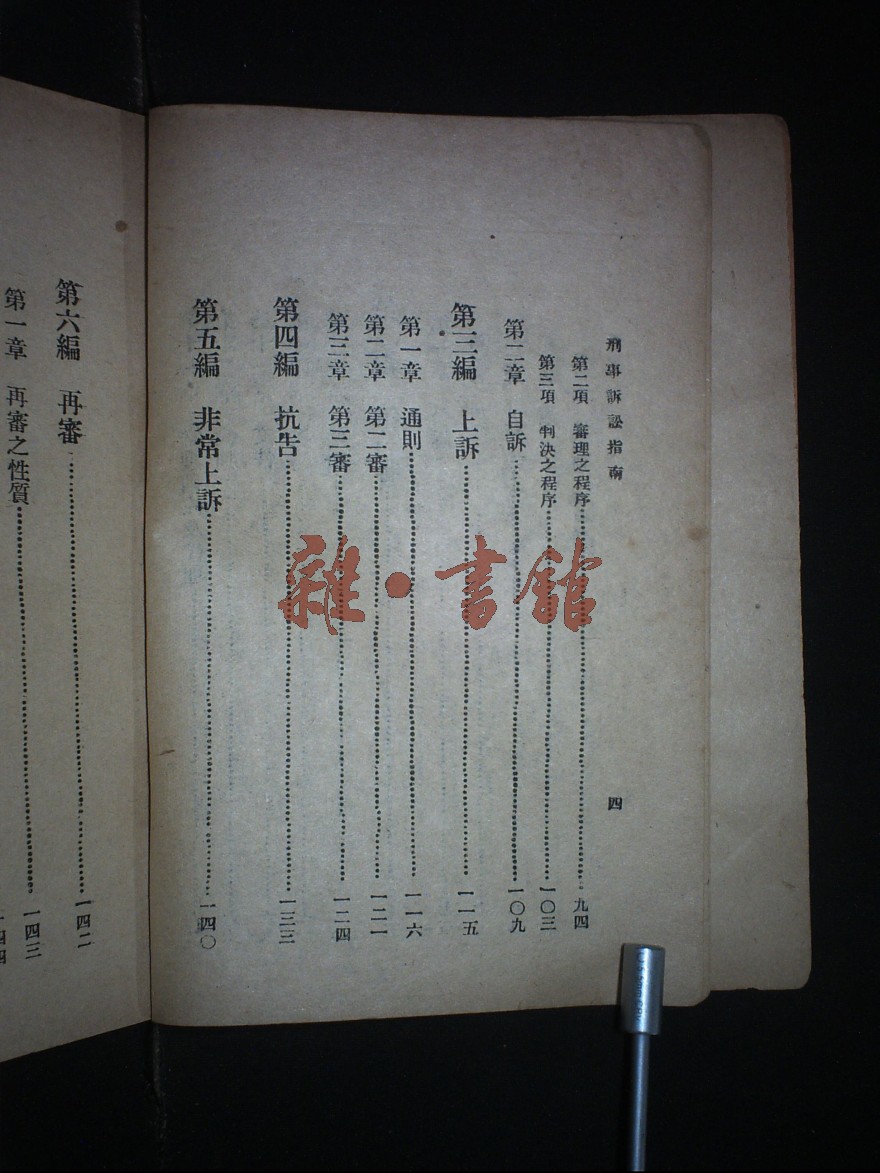 刑事訴訟指南
四
第二項 審理之程序 九四
第三項 判決之程序 一〇三
第二章 自訴 一〇九
第三編 上訴 一一五
第一章 通則 一一六
第二章 第二審 一二一
第三章 第三審 一二四
第四編 抗告 一三三
第五編 非常上訴 一四〇
第六編 再審 一四二
第一章 再審之性質 一四三
雜·書館